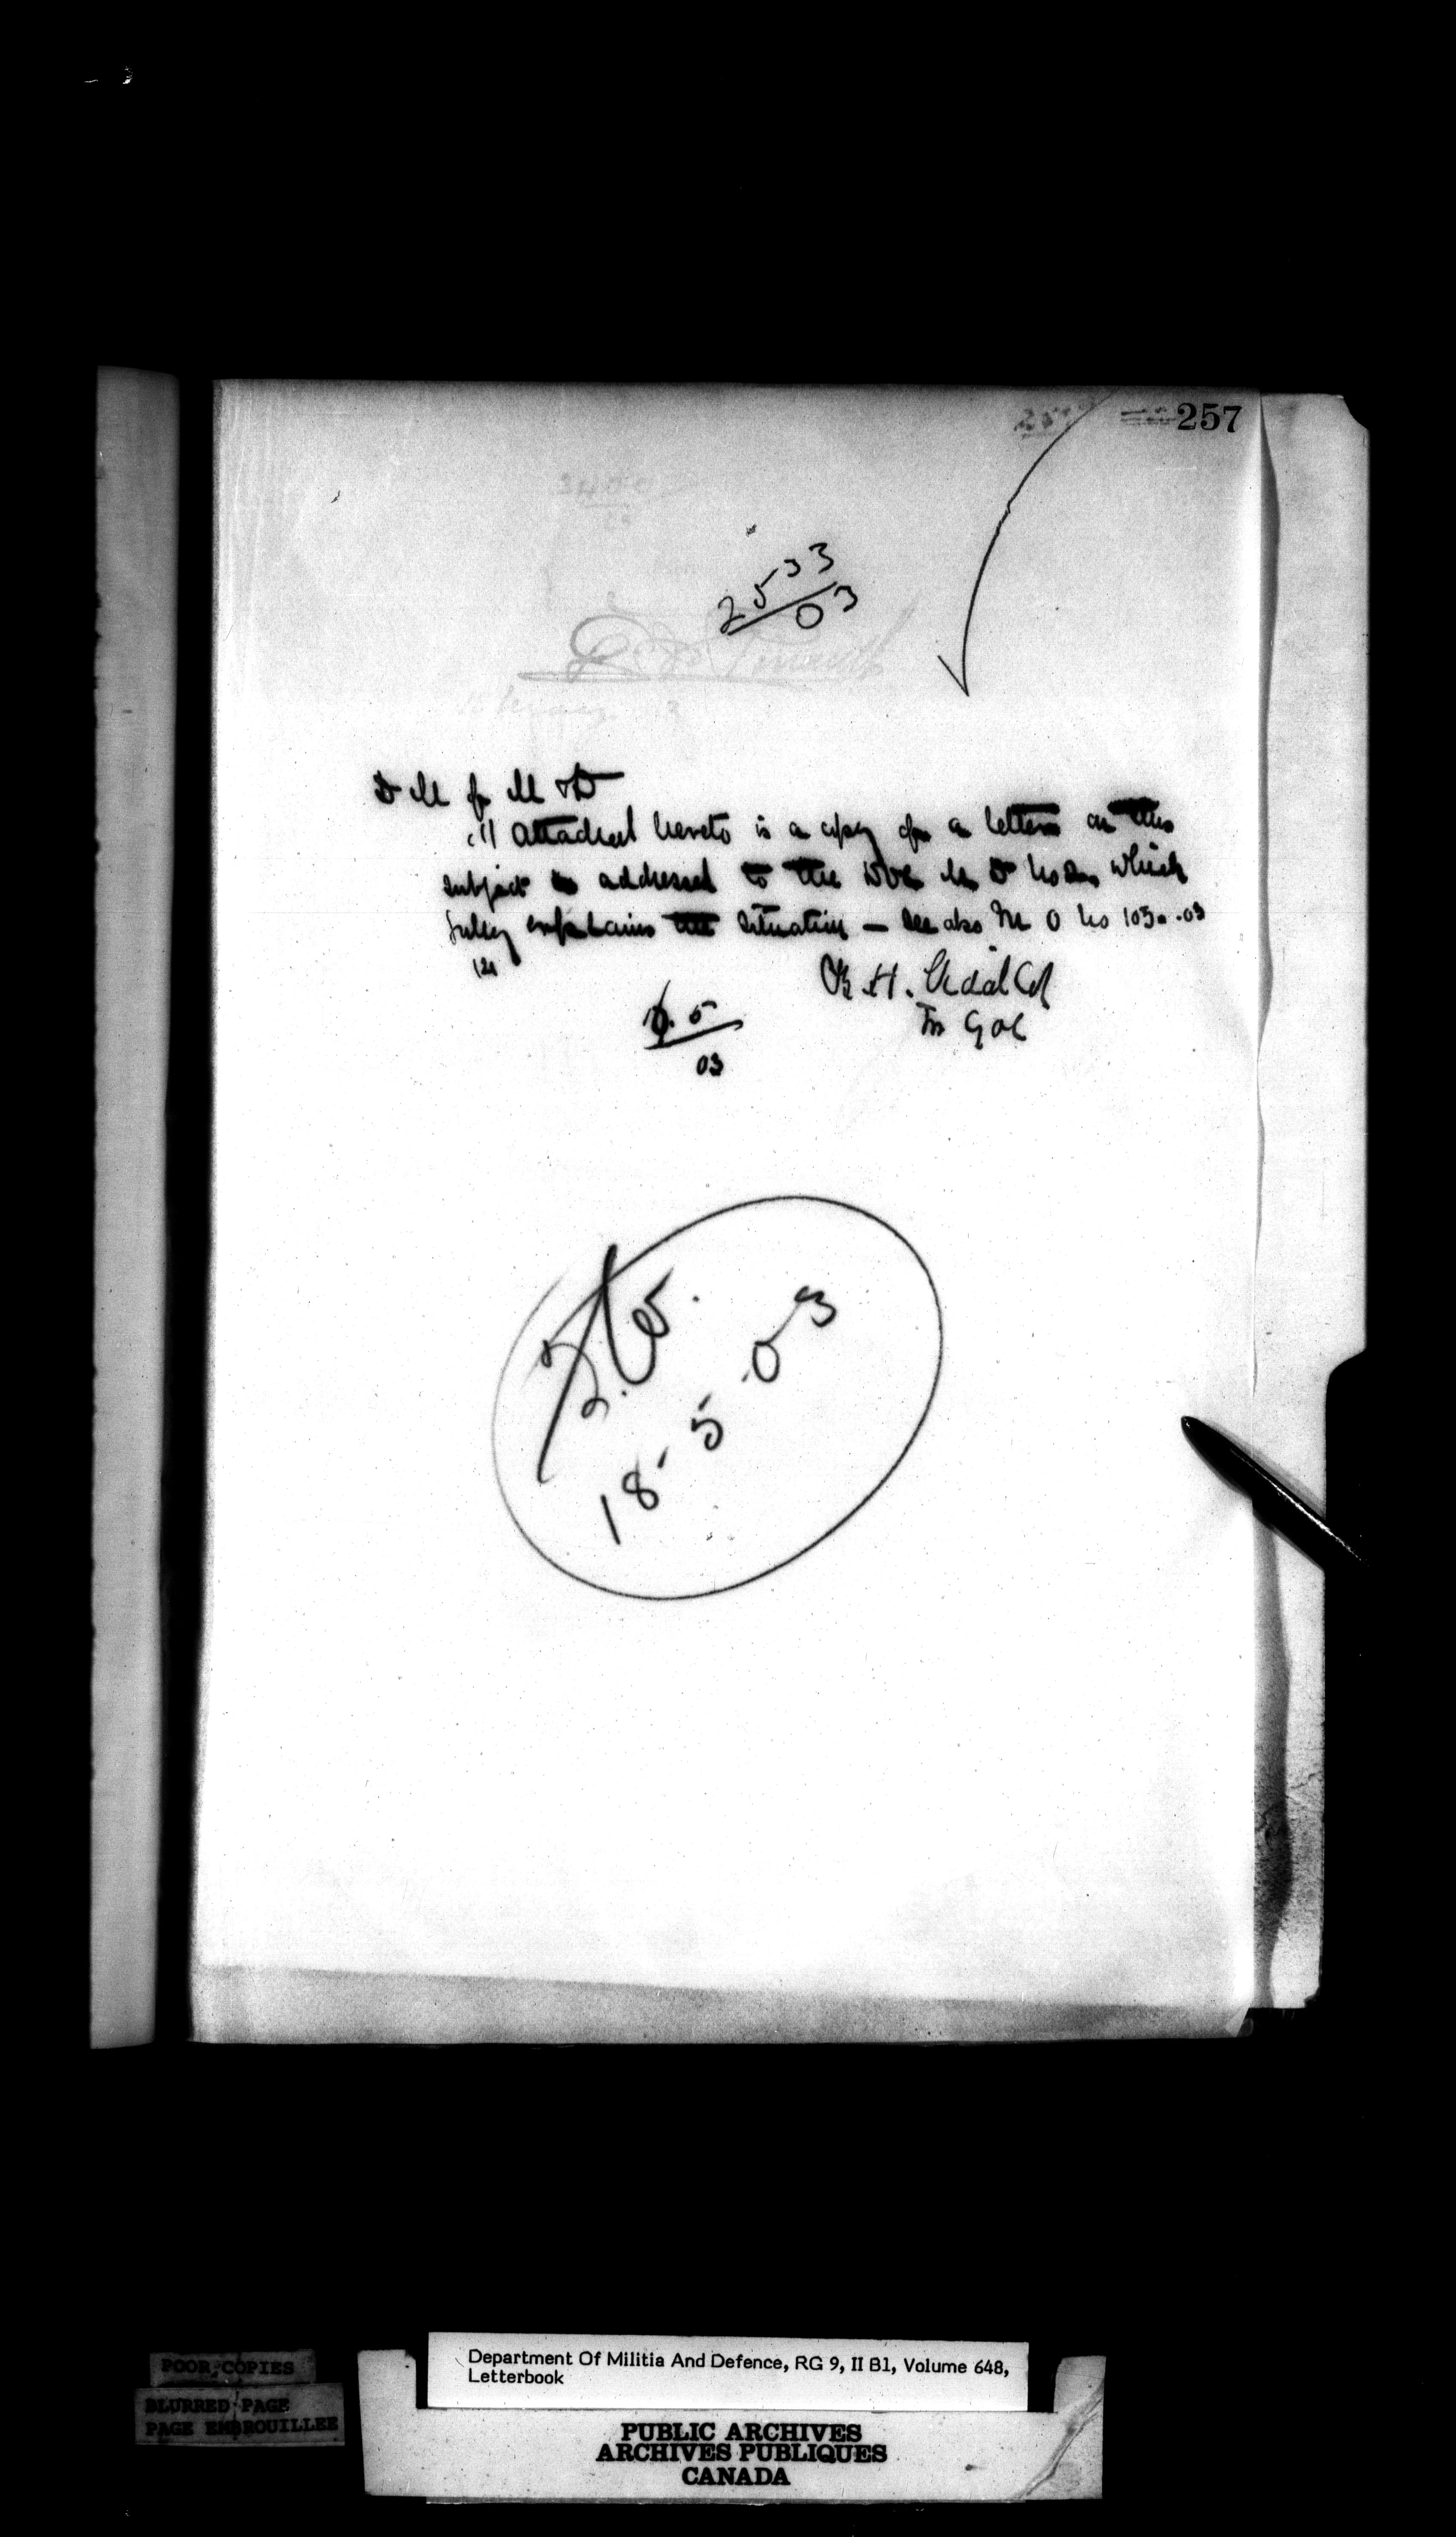 257
2533
03
D M of M & D
(1) Attached hereto is a copy of a letter on this
subject addressed to the DOC M D No which
fully explains the situation — see also M O No 105 .03
B.H. Col
For GOC
5
03
18-5.03
POOR COPIES
BLURRED PAGE
PAGE EMBROUILLEE
Department Of Militia And Defence, RG 9, II B1, Volume 648,
Letterbook
PUBLIC ARCHIVES
ARCHIVES PUBLIQUES
CANADA